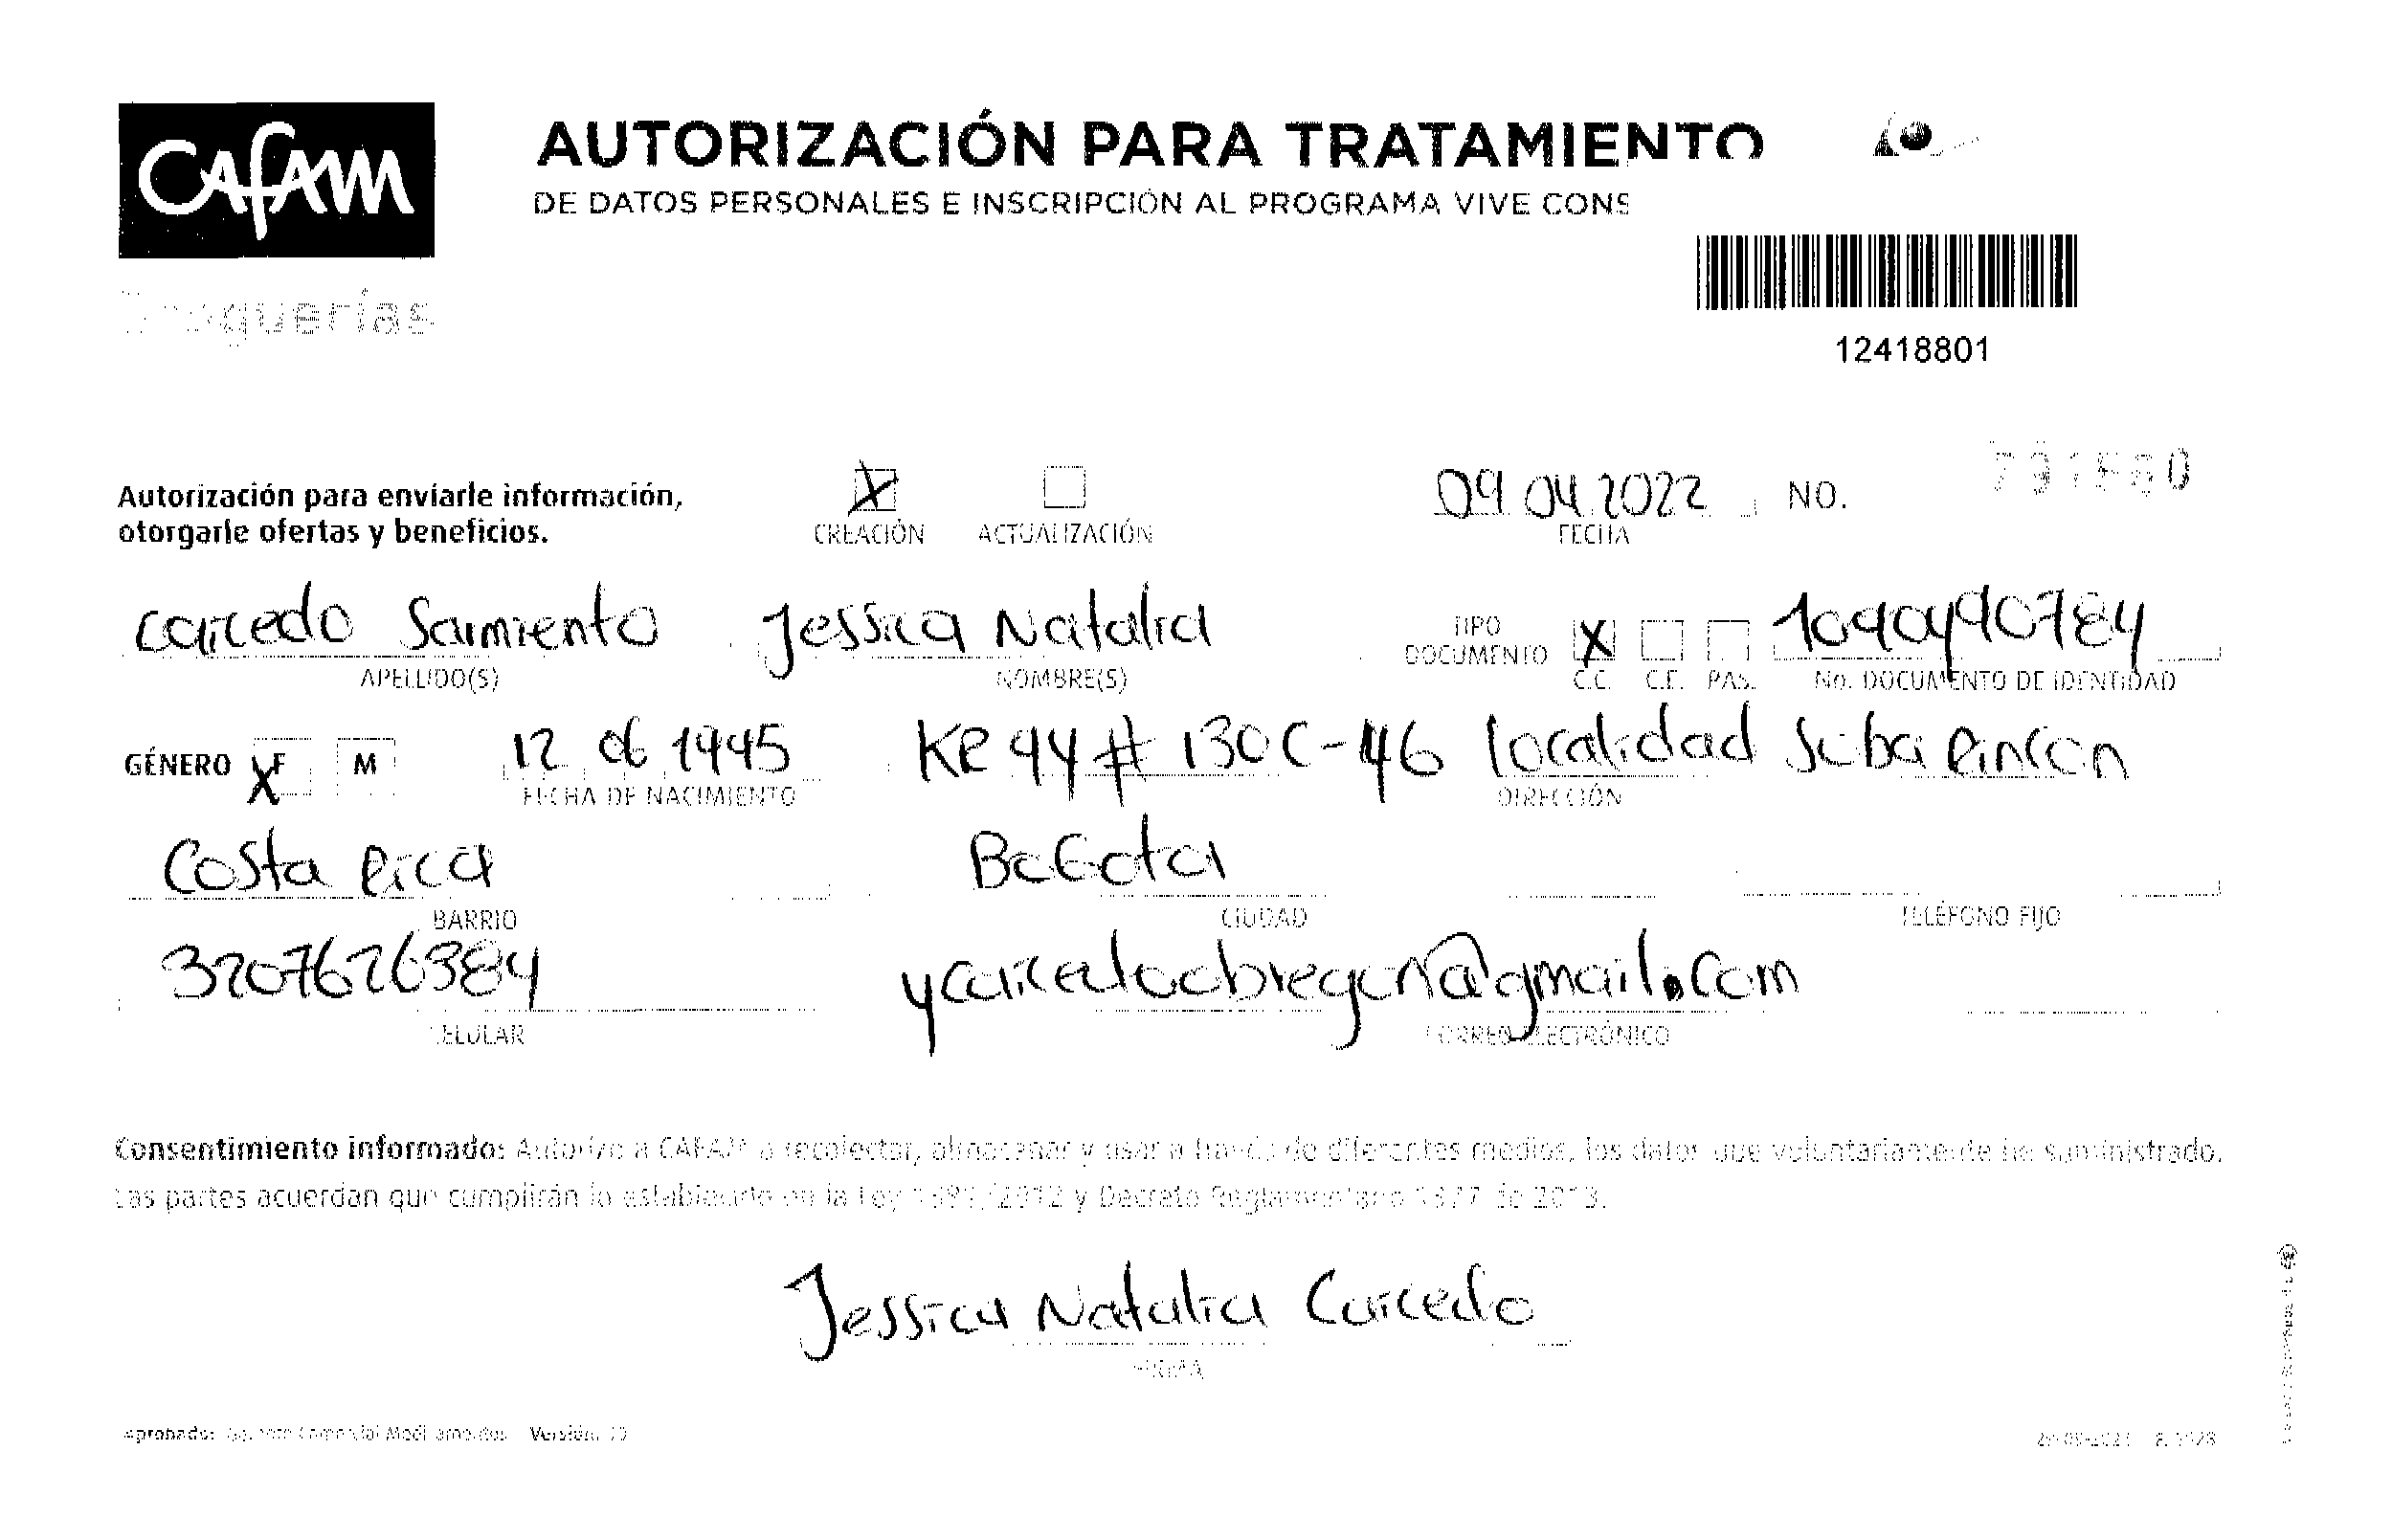 Cafam
AUTORIZACIÓN PARA TRATAMIENTO
DE DATOS PERSONALES E INSCRIPCIÓN AL PROGRAMA VIVE CONS
Droguerías
12418801
Autorización para enviarle información,
otorgarle ofertas y beneficios.
X CREACIÓN ACTUALIZACIÓN
09 04 2022 NO.
FECHA
Caicedo Sarmiento Jessica Natalia
APELLIDO(S) NOMBRE(S)
TIPO DOCUMENTO X C.C. C.E. PAS. 1090490784
No. DOCUMENTO DE IDENTIDAD
GÉNERO X F M 12 06 1995 KR 94 # 130C-46 localidad Suba Rincon
FECHA DE NACIMIENTO DIRECCIÓN
Costa Rica BoGota
BARRIO CIUDAD TELÉFONO FIJO
3207626384 ycaicedoobregon@gmail.com
CELULAR CORREO ELECTRÓNICO
Consentimiento informado: Autorizo a CAFAM a recolectar, almacenar y usar a través de diferentes medios, los datos que voluntariamente he suministrado.
Las partes acuerdan que cumplirán lo establecido en la Ley 2012 y Decreto Reglamentario 1377 de 2013.
Jessica Natalia Caicedo
FIRMA
Aprobado: Versión: